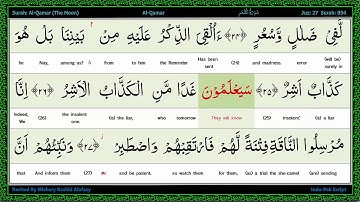 Surah: Al-Qamar (The Moon) Al-Qamar سُوْرَةُ الْقَمَر Juz: 27 Surah: 054
لَّفِىْ ضَلٰلٍ وَّسُعُرٍ ﴿۲۴﴾ ءَاُلْقِىَ الذِّكْرُ عَلَيْهِ مِنْۢ بَيْنِنَا بَلْ هُوَ
he Nay, among us? from to him the Reminder Has been sent (24) and madness. error (will be) surely in
كَذَّابٌ اَشِرٌ ﴿۲۵﴾ سَيَعْلَمُوْنَ غَدًا مَّنِ الْكَذَّابُ الْاَشِرُ ﴿۲۶﴾ اِنَّا
Indeed, We (26) the insolent one. (is) the liar, who tomorrow They will know (25) insolent. (is) a liar
مُرْسِلُوا النَّاقَةِ فِتْنَةً لَّهُمْ فَارْتَقِبْهُمْ وَاصْطَبِرْ ﴿۲۷﴾ وَنَبِّئْهُمْ اَنَّ
that And inform them (27) and be patient. so watch them for them, (as) a trial the she-camel (are) sending
Recited By Mishary Rashid Alafasy Indo-Pak Script